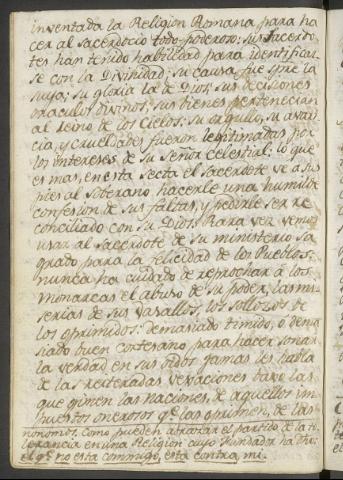 inventada la Religion Romana para ha
cer al sacerdocio todo poderoso: sus sacerdo
tes han tenido habilidad para identificar
se con la Divinidad; su causa fue sre la
suya; su gloria la de Dios; sus decisiones
oraculos divinos; sus bienes pertenecian
al Reino de los Cielos: su orgullo, su avari
cia, y crueldades fueron legitimadas por
los intereses de su Señor celestial: lo que
es mas, en esta secta el sacerdote ve a sus
pies al soberano hacerle una humilde
confesion de sus faltas, y pedirle ser re
conciliado con su Dios. Rara vez vemos
usar al Sacerdote de su ministerio sa
grado para la felicidad de los Pueblos:
nunca ha cuidado de reprochar á los
monarcas el abuso de su poder, las mi
serias de sus vasallos, los sollozos de
los oprimidos: demasiado timido, ó dema
siado buen cortesano para hacer sonar
la verdad en sus oidos jamas les habla
de las reiteradas vexaciones baxo las
que gimen las naciones, de aquellos im
puestos onerosos qe. las oprimen, de las
nonomos. como pueden abrazar el partido de la to
lerancia en una Religion cuyo Fundador ha dho:
el qe. no esta commigo, esta contra mi.